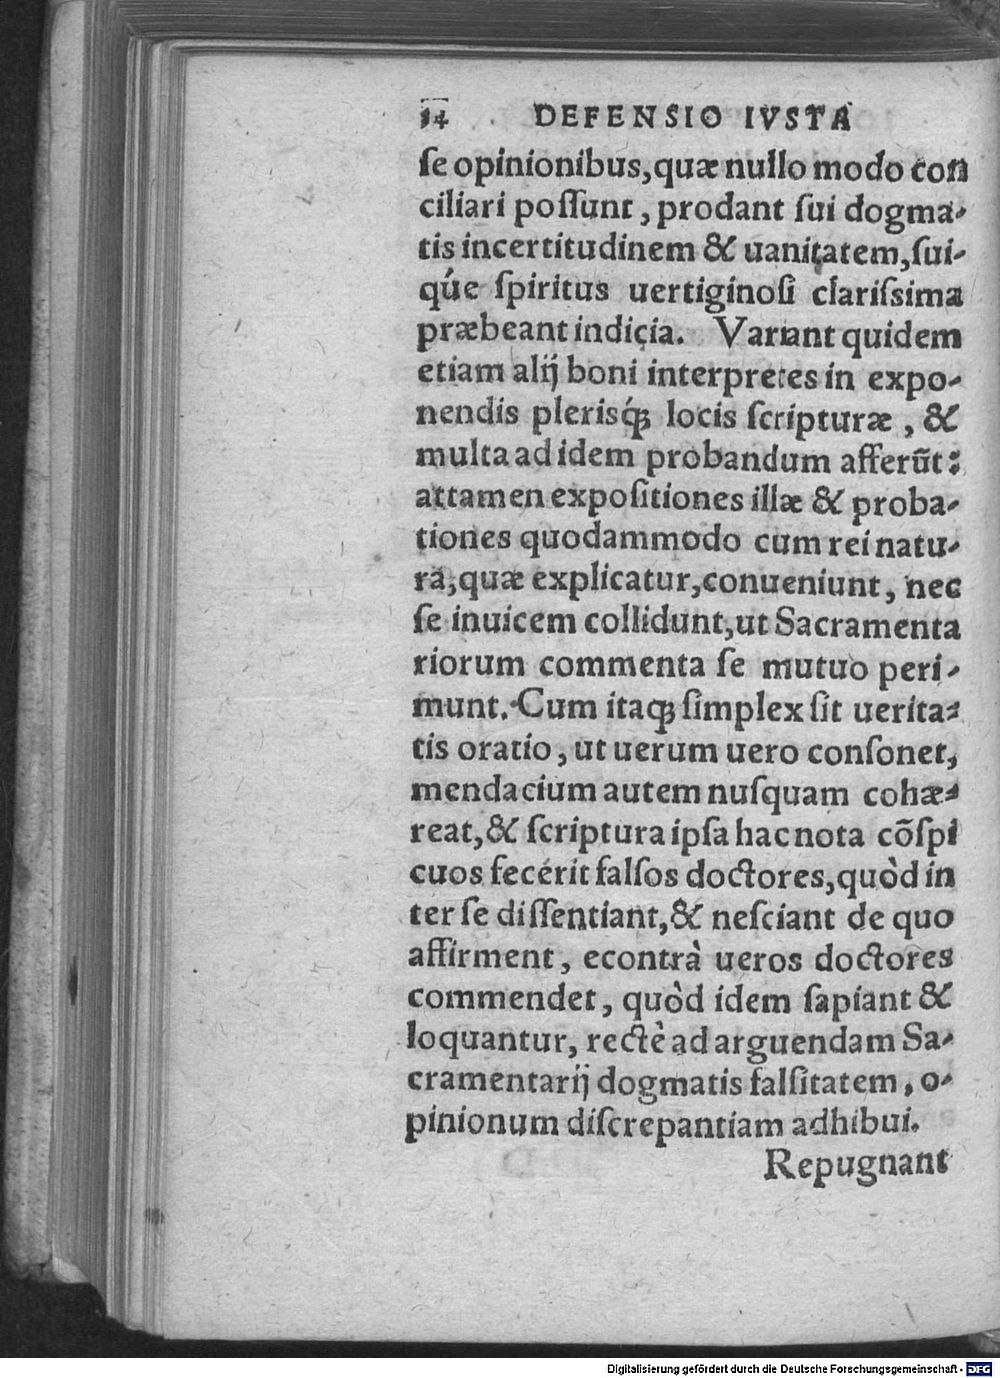 54 DEFENSIO IVSTA
ſe opinionibus, quæ nullo modo con
ciliari poſſunt, prodant ſui dogma-
tis incertitudinem & uanitatem, ſui-
qúe ſpiritus uertiginoſi clariſsima
præbeant indicia. Variant quidem
etiam alij boni interpretes in expo-
nendis pleriſq́ꝫ locis ſcripturæ, &
multa ad idem probandum afferūt:
attamen expoſitiones illæ & proba-
tiones quodammodo cum rei natu-
ra, quæ explicatur, conueniunt, nec
ſe inuicem collidunt, ut Sacramenta
riorum commenta ſe mutuo peri-
munt. Cum itaqꝫ ſimplex ſit uerita-
tis oratio, ut uerum uero conſonet,
mendacium autem nuſquam cohæ-
reat, & ſcriptura ipſa hac nota cōſpi
cuos fecérit falſos doctores, quòd in
ter ſe diſſentiant, & neſciant de quo
affirment, econtrà ueros doctores
commendet, quòd idem ſapiant &
loquantur, rectè ad arguendam Sa-
cramentarij dogmatis falſitatem, o-
pinionum diſcrepantiam adhibui.
Repugnant
Digitalisierung gefördert durch die Deutsche Forschungsgemeinschaft - DFG